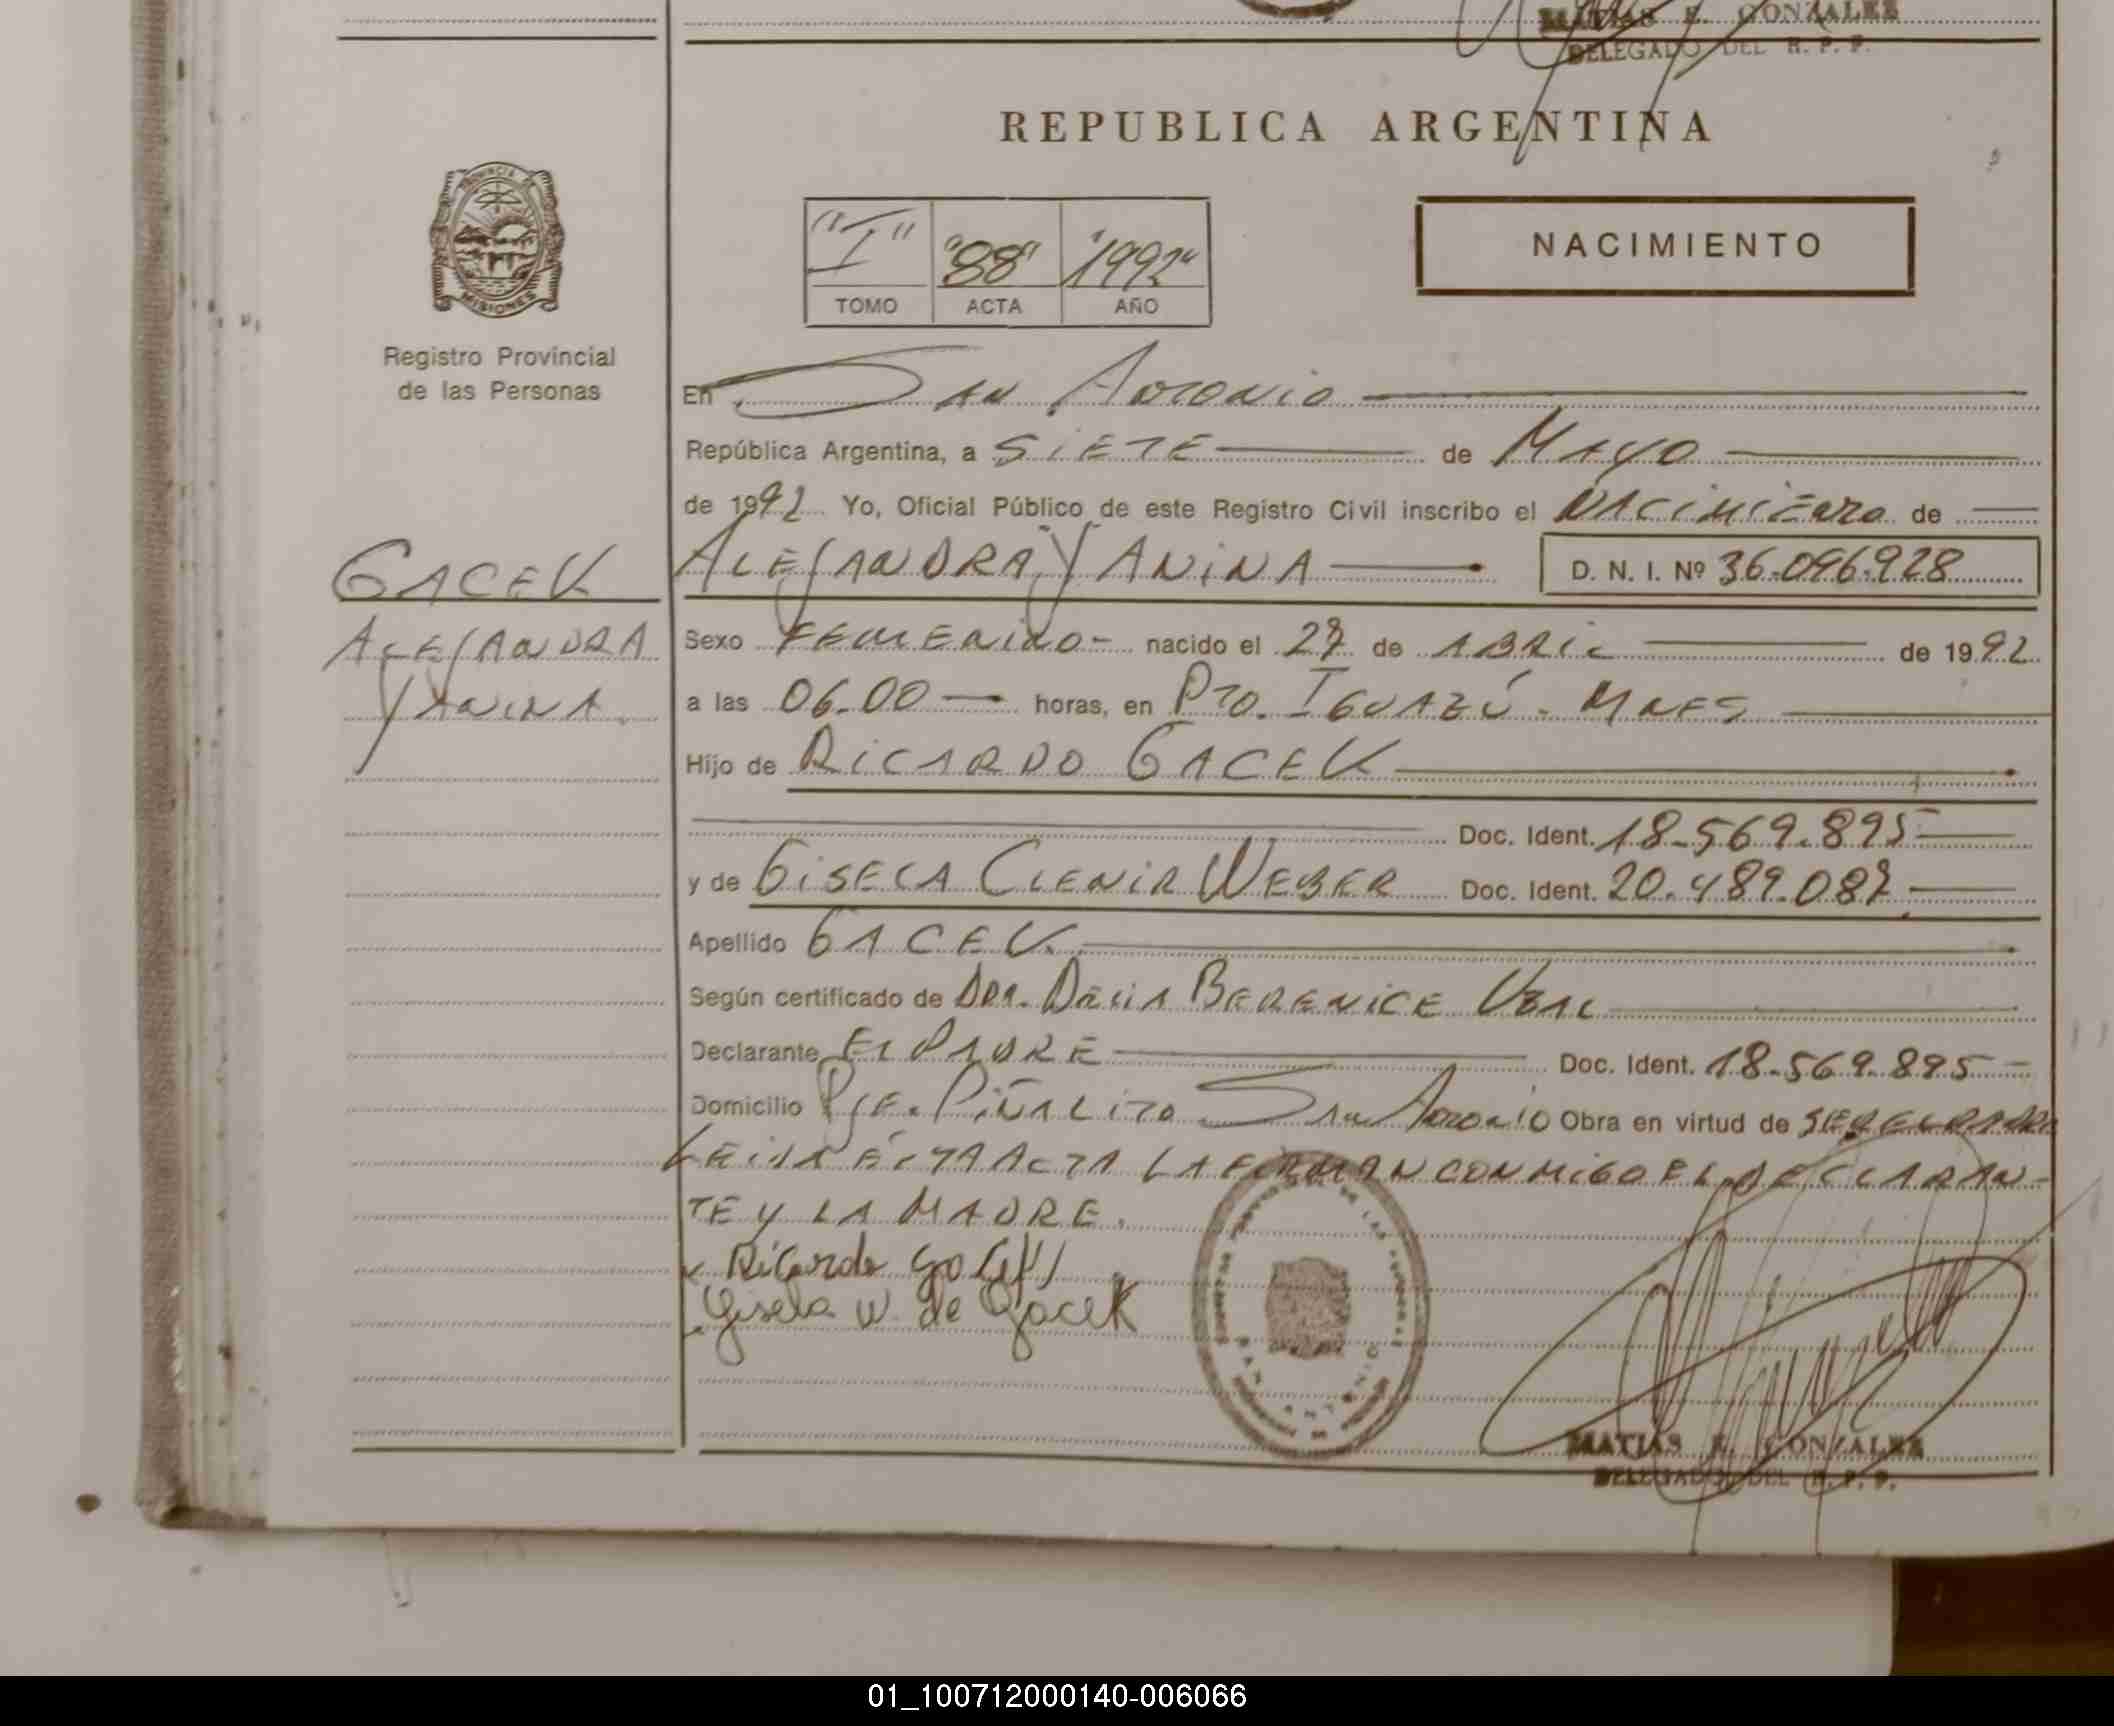 MATIAS E. GONZALEZ
DELEGADO DEL R. P. P.
REPUBLICA ARGENTINA
PROVINCIA DE
MISIONES
Registro Provincial
de las Personas
"I" "88" "1992"
TOMO ACTA AÑO
NACIMIENTO
En San Antonio
República Argentina, a SIETE de MAYO
de 1992 Yo, Oficial Público de este Registro Civil inscribo el NACIMIENTO de
GACEK
ALEJANDRA YANINA D. N. I. Nº 36.096.928
ALEJANDRA
YANINA.
Sexo FEMENINO- nacido el de ABRIL de 1992
a las 06.00 horas, en PTO. IGUAZÚ - MNES
Hijo de RICARDO GACEK
Doc. Ident. 18.569.895
y de GISELA CLENIR WEBER Doc. Ident.
Apellido GACEK.
Según certificado de DRA. DELIA BERENICE UBAL
Declarante El PADRE Doc. Ident. 18.569.895
Domicilio PJE. PIÑALITO San Antonio Obra en virtud de
LEIDA ÉSTA ACTA LA FIRMAN CONMIGO EL DECLARAN-
TE Y LA MADRE.
Ricardo
Gisela W. de Gacek
SAN ANTONIO
MATIAS E. GONZALEZ
DELEGADO DEL R. P. P.
01_100712000140-006066